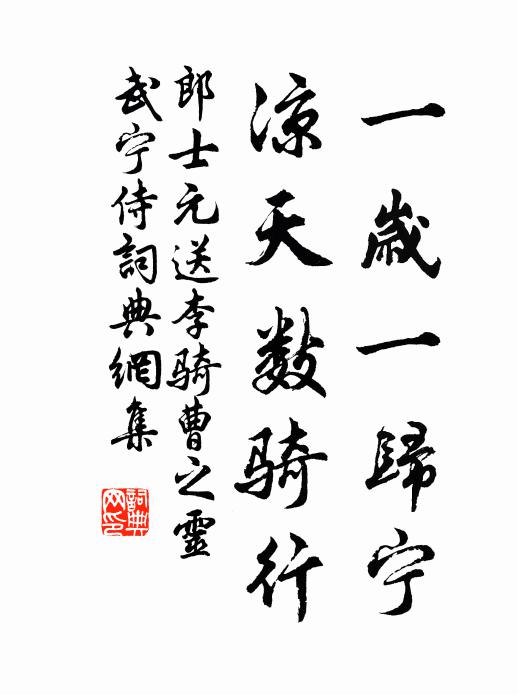 一歲一歸宁
涼天數騎行
郎士元送李騎曹之靈
武宁侍詞典網集
詞典网印